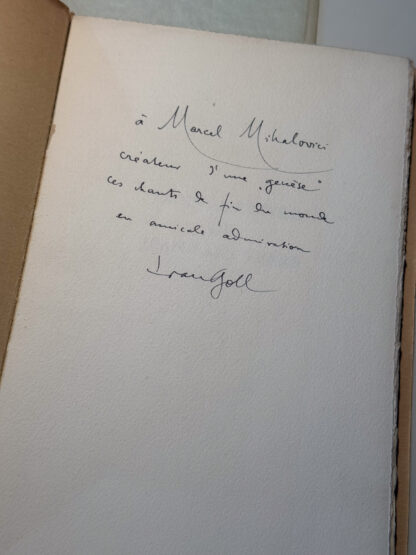 à Marcel Mihalovici
créateur d'une „genèse"
ces chants de fin du monde
en amicale admiration
Ivan Goll